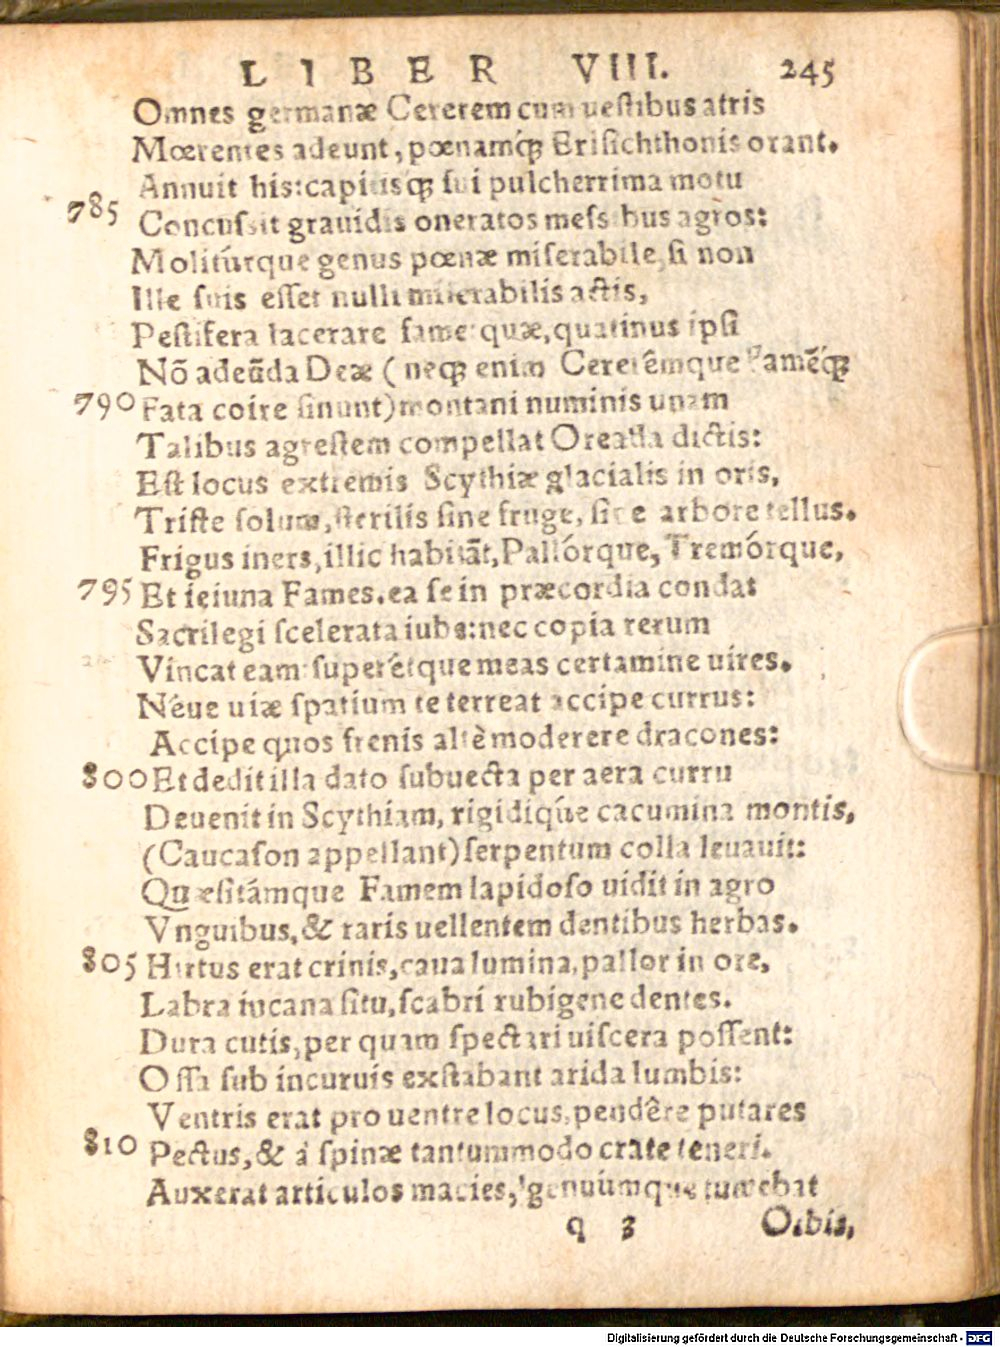 LIBER VIII. 245
Omnes germanæ Cererem cum uestibus atris
Mœrentes adeunt, pœnamq́; Erisichthonis orant.
Annuit his: capitisq; sui pulcherrima motu
785 Concussit grauidis oneratos messibus agros:
Molitúrque genus pœnæ miserabile, si non
Ille suis esset nulli miserabilis actis,
Pestifera lacerare fame: quæ, quatinus ipsi
Nō adeūda Deæ (neq; enim Cererêmque Famēq́;
790 Fata coire sinunt) montani numinis unam
Talibus agrestem compellat Oreada dictis:
Est locus extremis Scythiæ glacialis in oris,
Triste solum, sterilis sine fruge, sine arbore tellus.
Frigus iners, illic habitāt, Pallórque, Tremórque,
795 Et ieiuna Fames. ea se in præcordia condat
Sacrilegi scelerata iube: nec copia rerum
Vincat eam: superétque meas certamine uires.
Néue uiæ spatium te terreat accipe currus:
Accipe quos frenis altè moderere dracones:
800 Et dedit illa dato subuecta per aera curru
Deuenit in Scythiam, rigidiq́ue cacumina montis,
(Caucason appellant) serpentum colla leuauit:
Quæsitámque Famem lapidoso uidit in agro
Vnguibus, & raris uellentem dentibus herbas.
805 Hirtus erat crinis, caua lumina, pallor in ore,
Labra incana situ, scabri rubigene dentes.
Dura cutis, per quam spectari uiscera possent:
Ossa sub incuruis exstabant arida lumbis:
Ventris erat pro uentre locus, pendêre putares
810 Pectus, & à spinæ tantummodo crate teneri.
Auxerat articulos macies, genuúmque tumebat
q 3 Orbis,
Digitalisierung gefördert durch die Deutsche Forschungsgemeinschaft - DFG